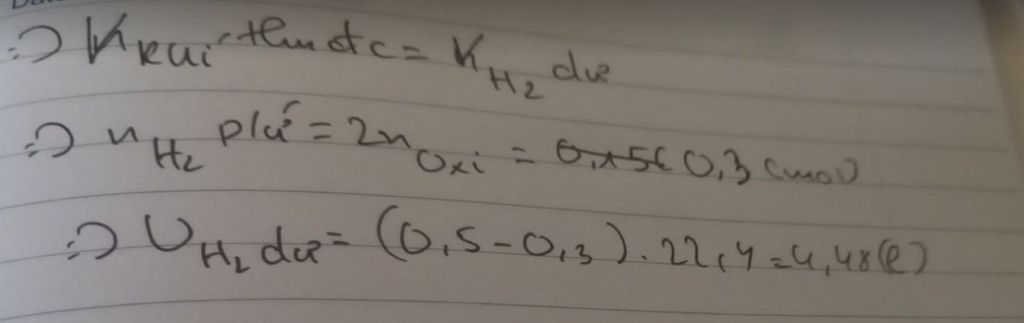 => V khí thu đc = V H₂ dư
=> n H₂ p/ứ = 2n Oxi = 0,3 (mol)
=> V H₂ dư = (0,5-0,3).22,4=4,48(l)